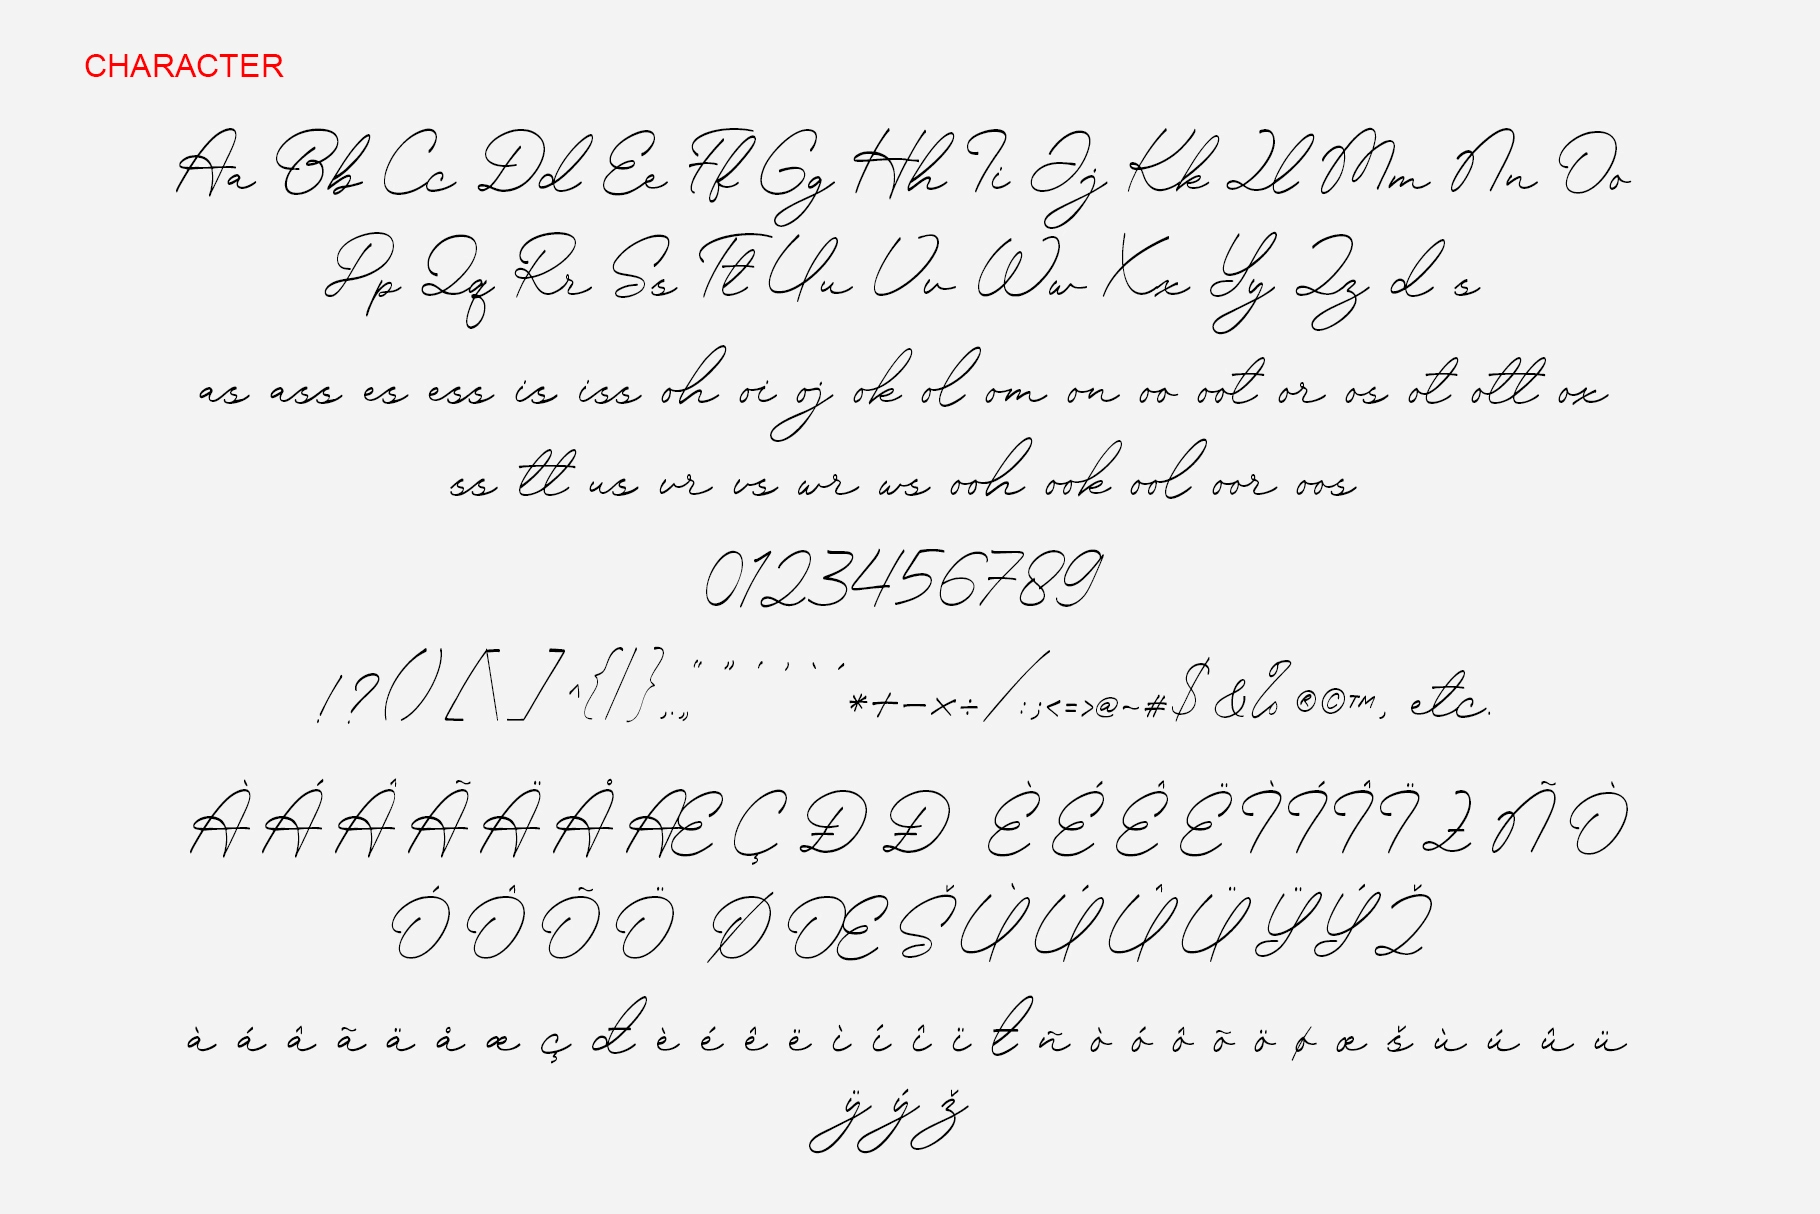 CHARACTER
Aa Bb Cc Dd Ee Ff Gg Hh Ii Jj Kk Ll Mm Nn Oo
Pp Qq Rr Ss Tt Uu Vv Ww Xx Yy Zz d s
as ass es ess is iss oh oi oj ok ol om on oo oot or os ot ott ox
ss tt us vr vs wr ws ooh ook ool oor oos
0123456789
!?()[\]^{|},.„ “ ” ‘ ’ ` ´*+−×÷/:;<=>@~#$&%®©™, etc.
ÀÁÂÃÄÅÆÇĐĐ ÈÉÊËÌÍÎÏŁÑÒ
ÓÔÕÖ ØŒŠÙÚÛÜŸÝŽ
à á â ã ä å æ ç đ è é ê ë ì í î ï ł ñ ò ó ô õ ö ø œ š ù ú û ü
ÿ ý ž